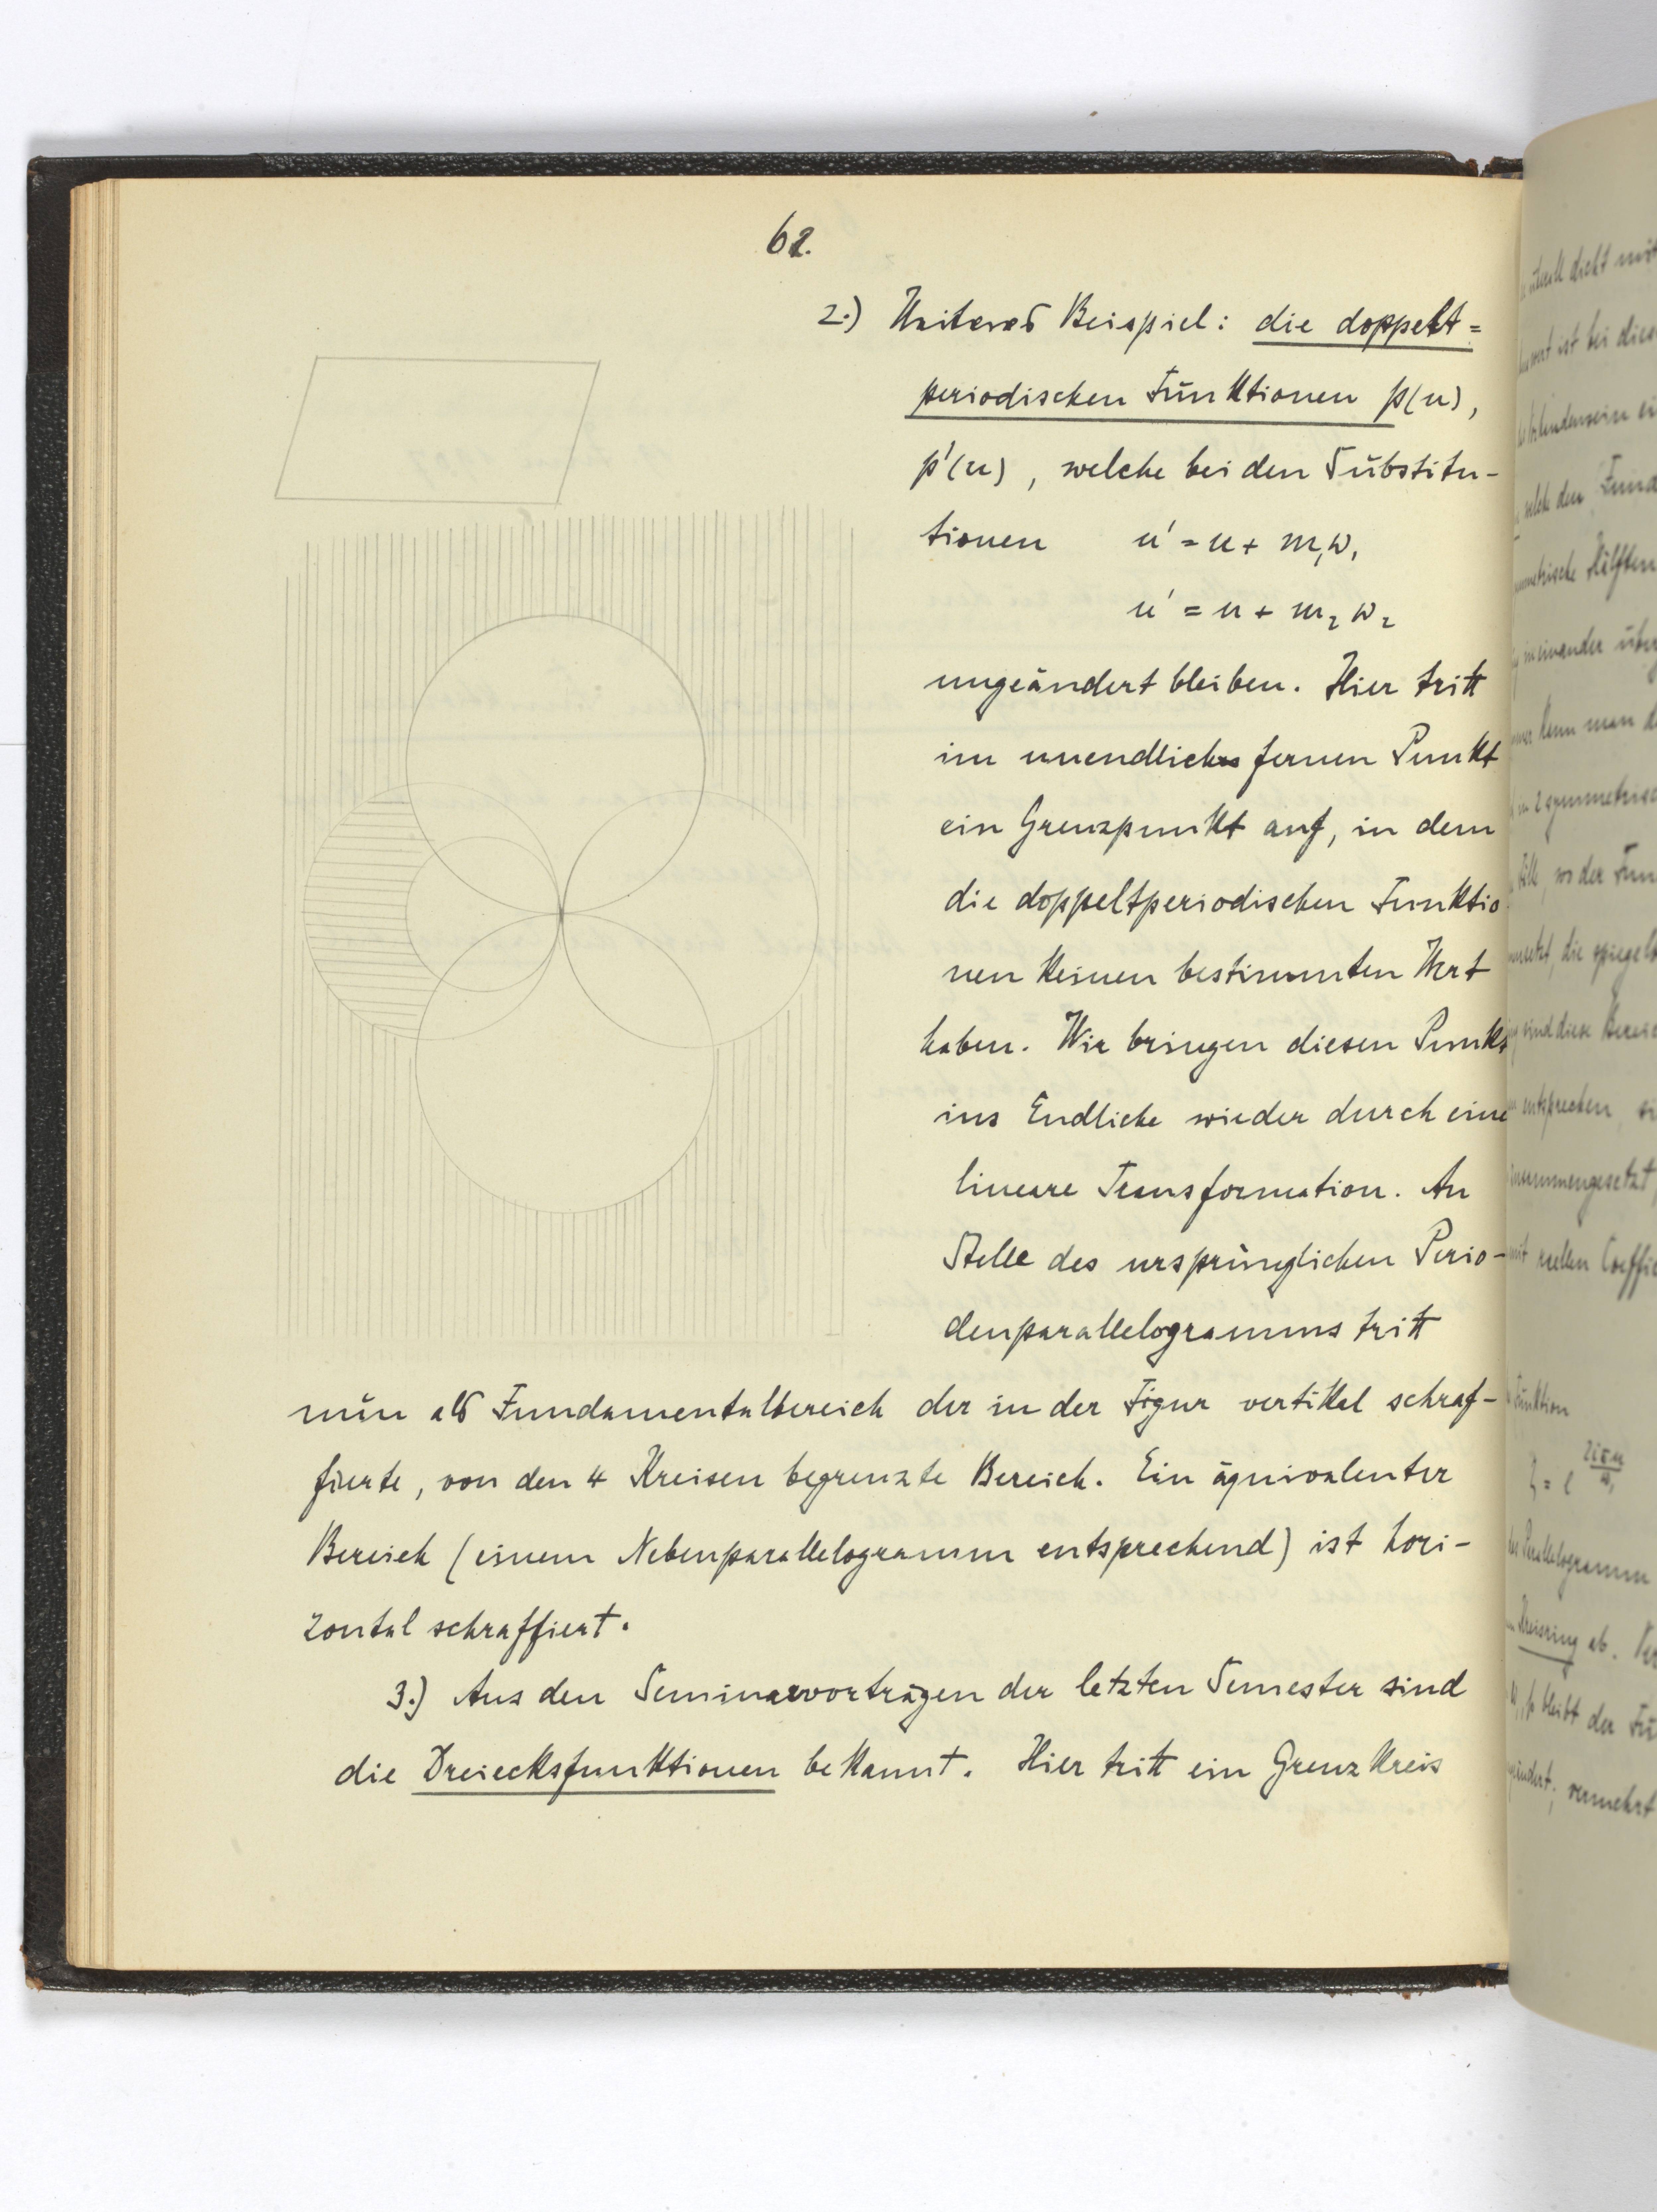 62.
2.) Weiteres Beispiel: die doppelt=
periodischen Funktionen p(u),
p'(u), welche bei den Substitu-
tionen u' = u + m₁ω₁
u' = u + m₂ω₂
ungeändert bleiben. Hier tritt
im unendlich fernen Punkt
ein Grenzpunkt auf, in dem
die doppeltperiodischen Funktio
nen keinen bestimmten Wert
haben. Wir bringen diesen Punkt
ins Endliche wieder durch eine
lineare Transformation. An
Stelle des ursprünglichen Perio-
denparallelogramms tritt
nun als Fundamentalbereich der in der Figur vertikal schraf-
fierte, von den 4 Kreisen begrenzte Bereich. Ein äquivalenter
Bereich (einem Nebenparallelogramm entsprechend) ist hori-
zontal schraffiert.
3.) Aus den Seminarvorträgen der letzten Semester sind
die Dreiecksfunktionen bekannt. Hier tritt ein Grenzkreis